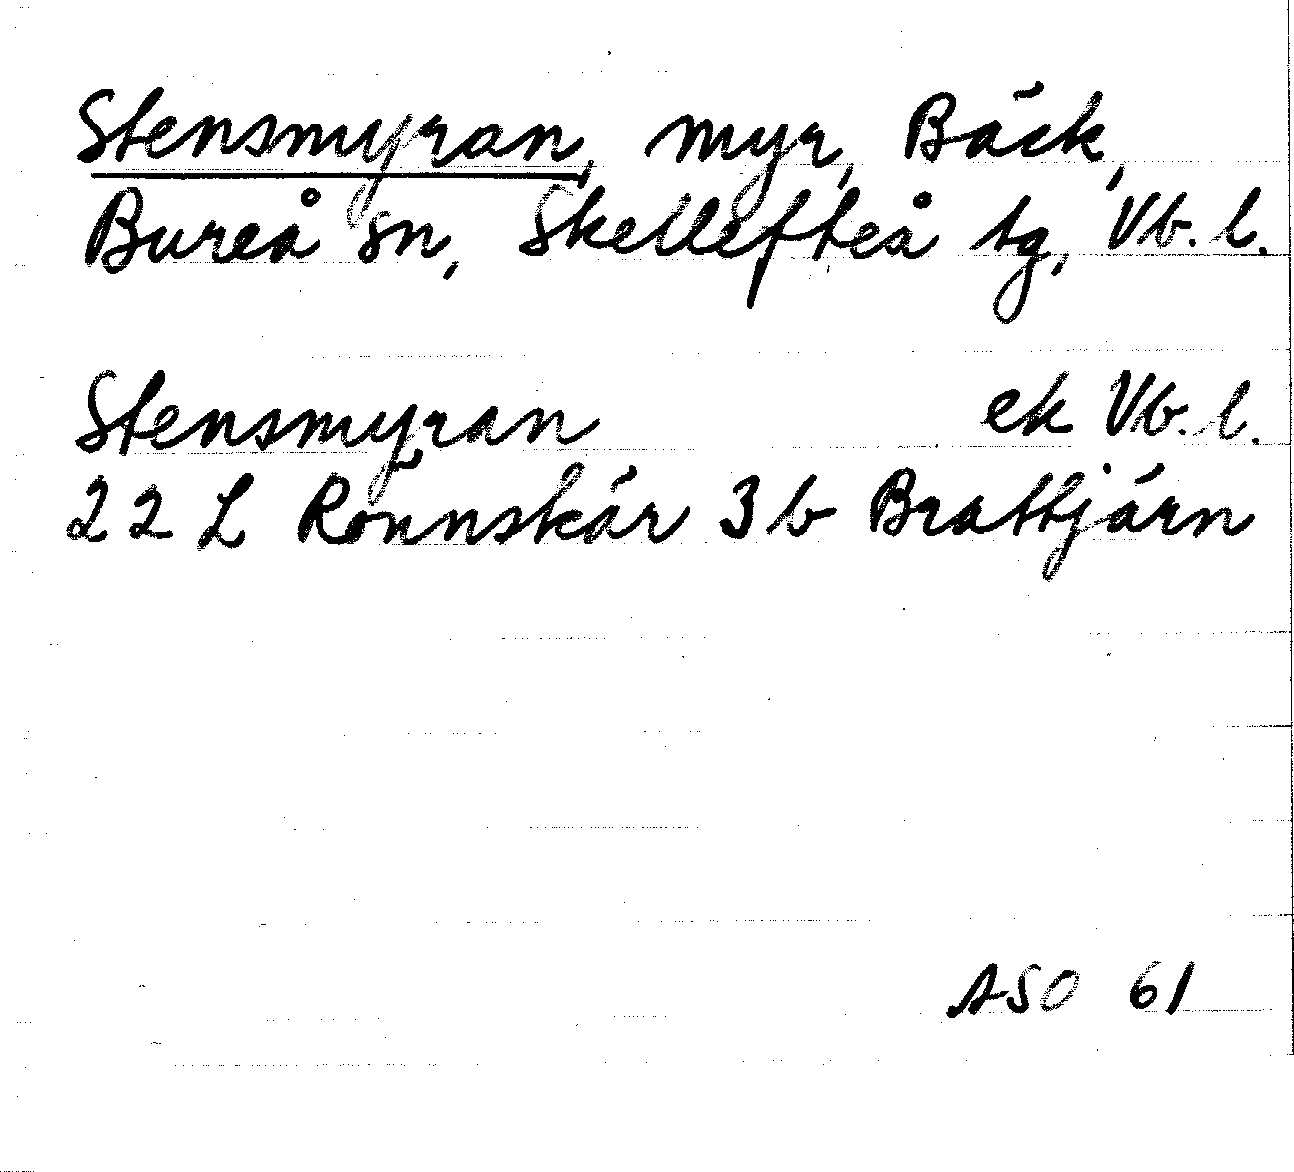 Stensmyran, myr, Bäck,
Bureå sn, Skellefteå tg, Vb. l.
Stensmyran ek Vb. l.
22 L Rönnskär 3 b Brattjärn
ASO 61